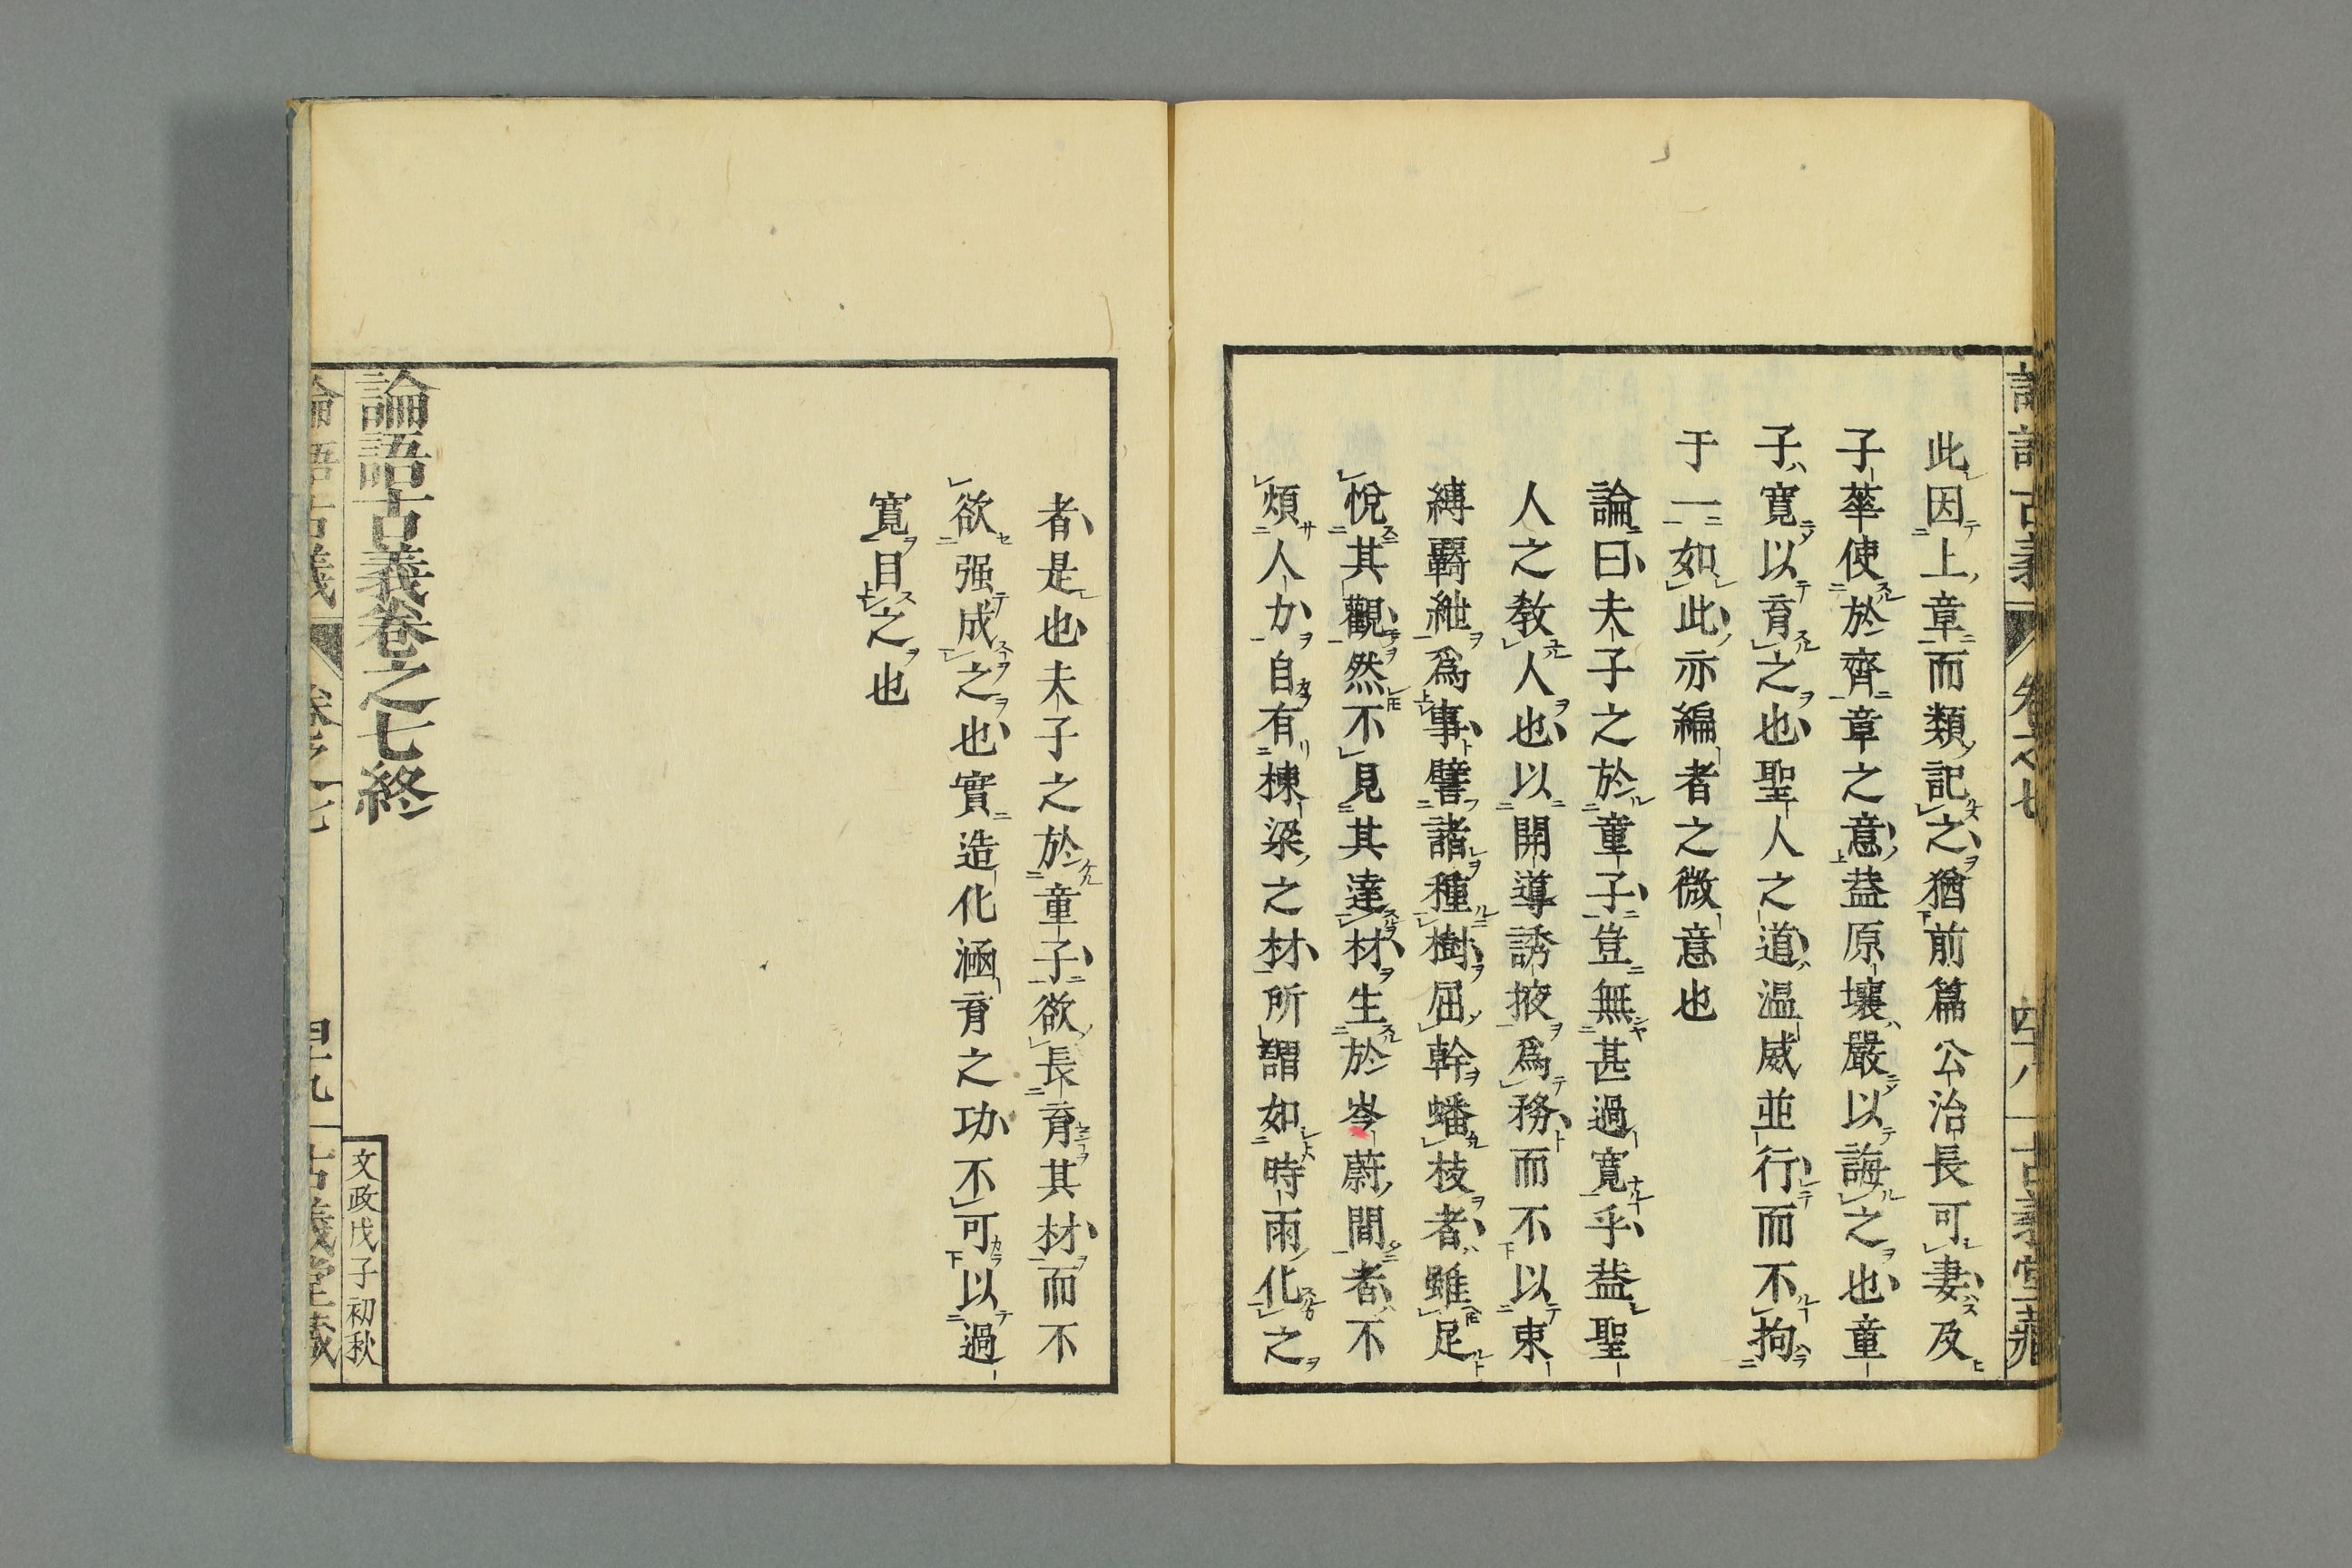 此因上章而類記之猶前篇公冶長可妻及
子華使於齊章之意蓋原壤嚴以誨之也童
子寛以育之也聖人之道温威並行而不拘
于一如此亦編者之微意也
論曰夫子之於童子豈無甚過寛乎蓋聖
人之教人也以開導誘掖爲務而不以束
縛羈紲爲事譬諸種樹屈幹蟠枝者雖足
悅其觀然不見其達材生於岑蔚間者不
煩人力自有棟梁之材所謂如時雨化之
者是也夫子之於童子欲長育其材而不
欲强成之也實造化涵育之功不可以過
寛目之也
論語古義卷之七終
文政戊子初秋
論語古義 卷之七 四十九 古義堂藏